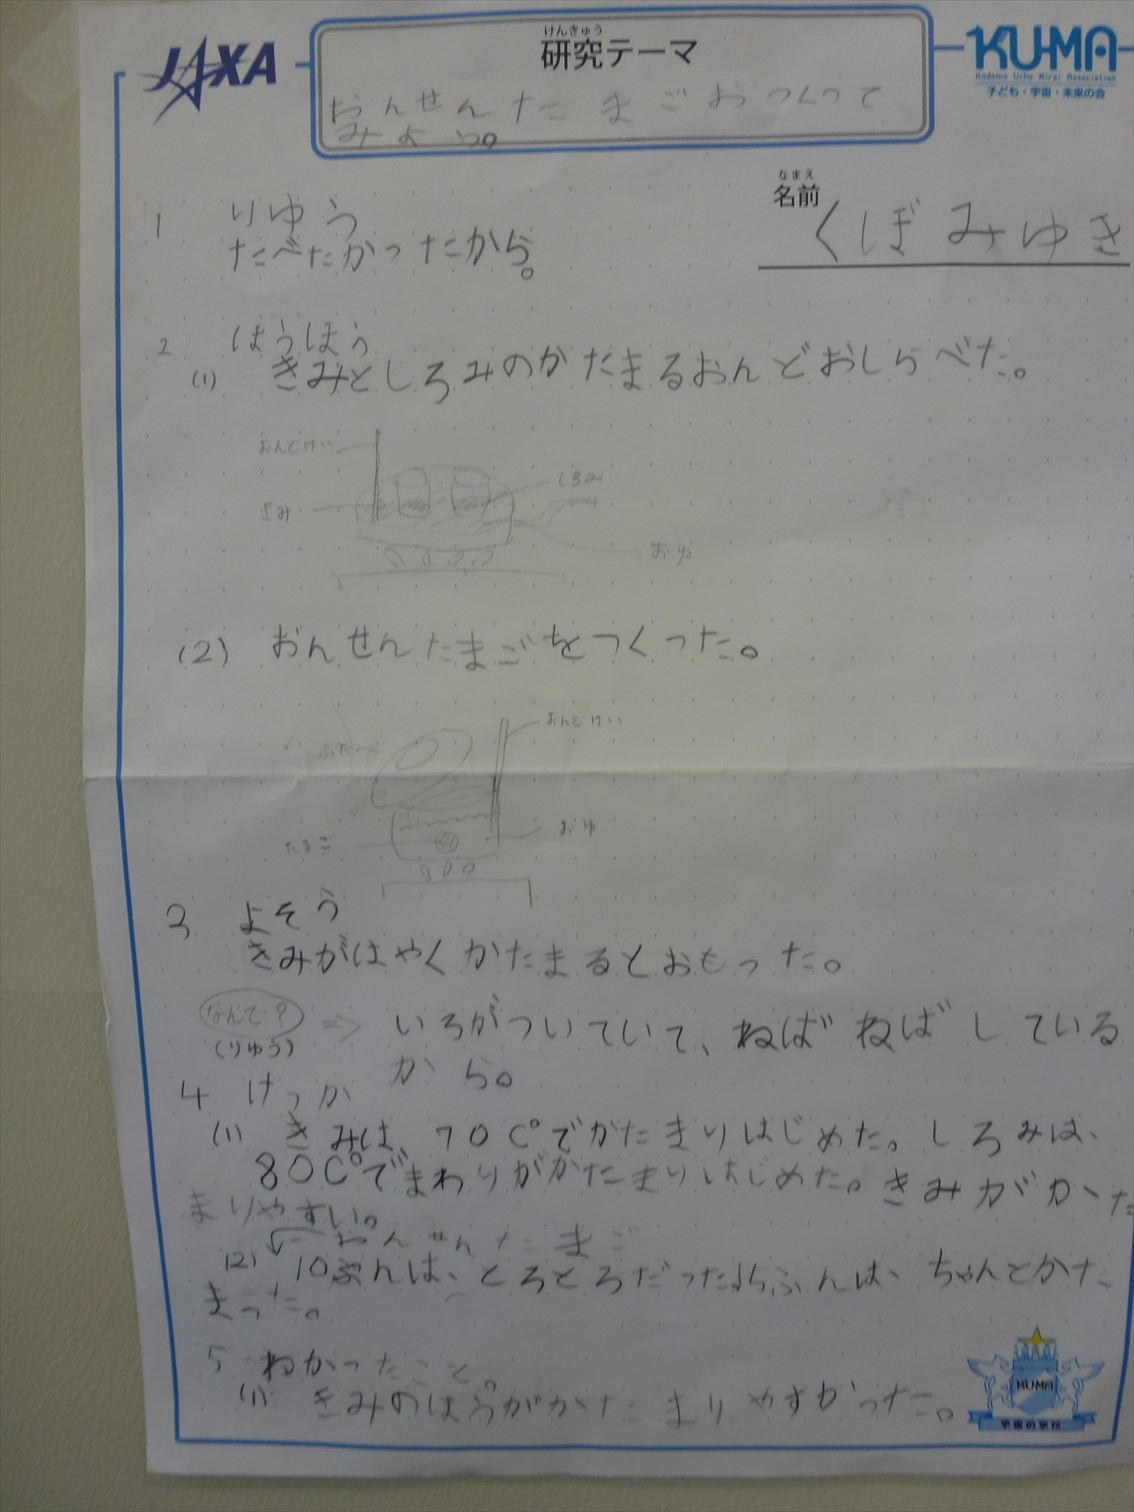 JAXA
けんきゅう
研究テーマ
KU-MA
Kodomo Uchu Mirai Association
子ども・宇宙・未来の会
おんせんたまごおつくって
みよう。
なまえ
名前
くぼみゆき
1 りゆう
たべたかったから。
2 ほうほう
(1) きみとしろみのかたまるおんどおしらべた。
おんどけい
きみ
しろみ
おゆ
(2) おんせんたまごをつくった。
おんどけい
ふた
たまご
おゆ
3 よそう
きみがはやくかたまるとおもった。
なんで?
(りゆう)
⇒ いろがついていて、ねばねばしている
から。
4 けっか
(1) きみは、70C°でかたまりはじめた。しろみは、
80C°でまわりがかたまりはじめた。きみがかた
まりやすい。
おんせんたまご
(2) 10ぷんは、とろとろだった15ふんは、ちゃんとかた
まった。
5 わかったこと。
(1) きみのほうがかたまりやすかった。
KU-MA
宇宙の学校